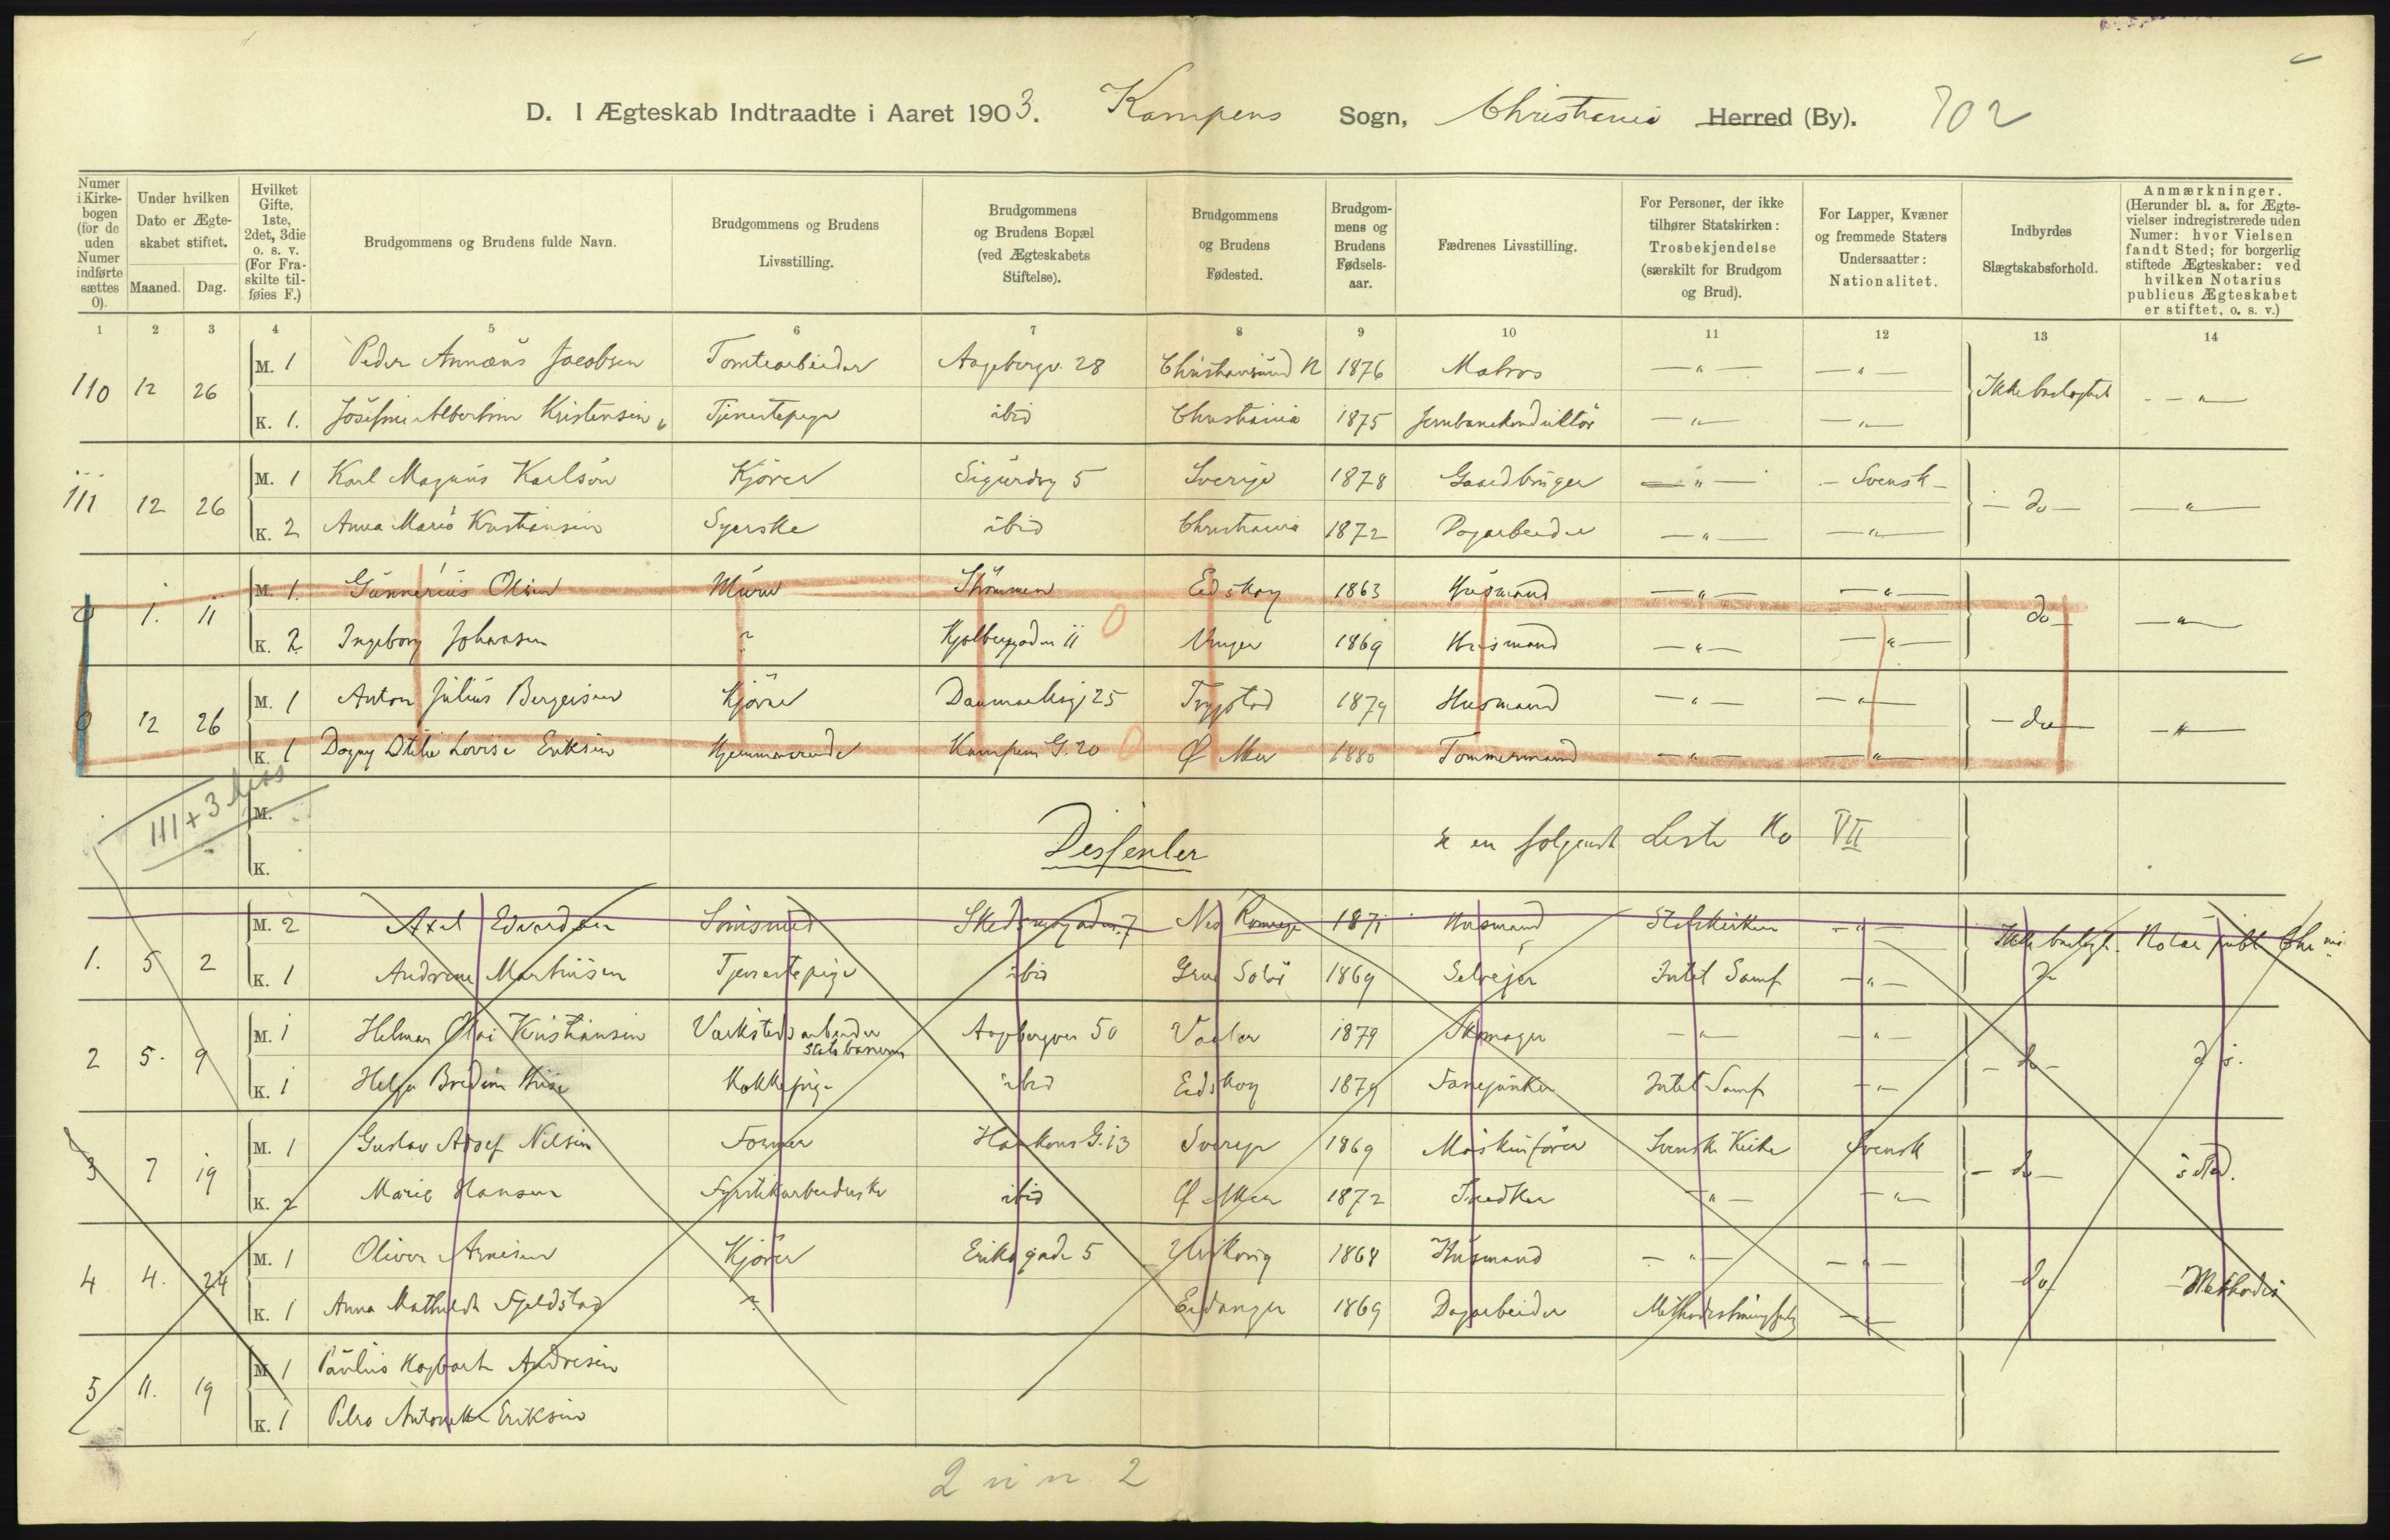 D. I Ægteskab Indtraadte i Aaret 1903. Kampens Sogn, Christiania Herred (By). 702
Numer i Kirkebogen (for de uden Numer indførte sættes 0).
Under hvilken Dato er Ægteskabet stiftet.
Maaned. Dag.
Hvilket Gifte. 1ste, 2det, 3die o. s. v. (For Fraskilte tilføies F.)
Brudgommens og Brudens fulde Navn.
Brudgommens og Brudens Livsstilling.
Brudgommens og Brudens Bopæl (ved Ægteskabets Stiftelse).
Brudgommens og Brudens Fødested.
Brudgommens og Brudens Fødselsaar.
Fædrenes Livsstilling.
For Personer, der ikke tilhører Statskirken: Trosbekjendelse (særskilt for Brudgom og Brud).
For Lapper, Kvæner og fremmede Staters Undersaatter: Nationalitet.
Indbyrdes Slægtskabsforhold.
Anmærkninger. (Herunder bl. a. for Ægtevielser indregistrerede uden Numer: hvor Vielsen fandt Sted; for borgerlig stiftede Ægteskaber: ved hvilken Notarius publicus Ægteskabet er stiftet, o. s. v.)
1 2 3 4 5 6 7 8 9 10 11 12 13 14
110 12 26 M. 1 Peder Annæus Jacobsen Tomtearbeider Aagebergv. 28 Christiansund N 1876 Matros — " — — " — Ikke beslægtet — " —
K. 1. Josefine Albertine Kristensen Tjenestepige ibid Christiania 1875 Jernbanekonduktør — " — — " —
111 12 26 M. 1 Karl Magnus Karlson Kjører Sigurdsg 5 Sverige 1878 Gaardbruger — " — - Svensk - - do - — " —
K. 2 Anna Marie Kristiansen Syerske ibid Christiania 1872 Dagarbeider — " — — " —
0 1. 11 M. 1. Gunnerius Olsen Murer Strømmen Eidskog 1863 Husmand — " — — " — do — " —
K. 2 Ingeborg Johansen ? Kjølberggaden 11 Vinger 1869 Husmand — " — — " —
0 12 26 M. 1 Anton Julius Bergersen Kjører Danmarksg 25 Trygstad 1879 Husmand — " — — " — - do - — " —
K. 1 Dagny Otilie Lovise Eriksen Hjemmeværende Kampens G. 20 Ø Aker 1880 Tømmermand — " — — " —
111 + 3 diss
M.
K. Dissenter se en følgende Liste No VII
1. 5 2 M. 2 Axel Edvardsen Smed Skedsmogaden 7 Nes Romerige 1871 Husmand Statskirken — " — Ikke beslægt. Notar publ Chr nia
K. 1 Andrine Martinsen Tjenestepige ibid Grue Solør 1869 Selveier Intet Samf — " — do
2 5. 9 M. 1 Helmer Olai Kristiansen Værkstedsarbeider Statsbanerne Aagebergvei 50 Vaaler 1879 Skomager — " — — " — - do - do.
K. 1 Helga Kokkepige ibid Eidskog 1879 Fanejunker Intet Samf — " —
3 7 19 M. 1 Gustav Adolf Nilsen Former Haakons G. 13 Sverige 1869 Maskinfører Svenske Kirke Svensk - do -
K. 2 Marie Hansen Fyrstikarbeiderske ibid Ø Aker 1872 Snedker — " — — " —
4 4. 24 M. 1 Oliver Arnesen Kjører Eriks gade 5 1868 Husmand — " — — " — do Methodis
K. 1 Anna Mathilde Fjeldstad ? Eidanger 1869 Dagarbeider — " —
5 11. 19 M. 1 Paulus Hagbart Andresen
K. 1 Petra Antonette Eriksen